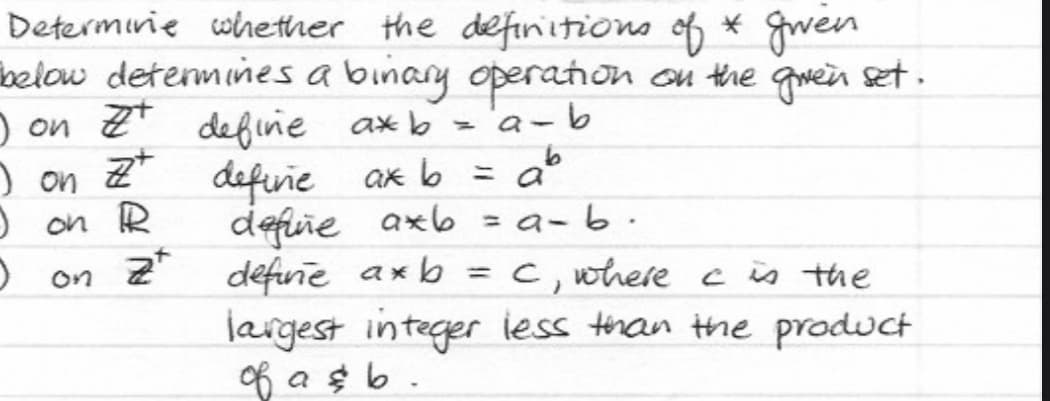 Determine whether the definitions of * given
below determines a binary operation on the given set.
) on ℤ⁺ define a*b = a-b
) on ℤ⁺ define a*b = aᵇ
) on ℝ define a*b = a-b.
) on ℤ⁺ define a*b = c, where c is the
largest integer less than the product
of a & b.